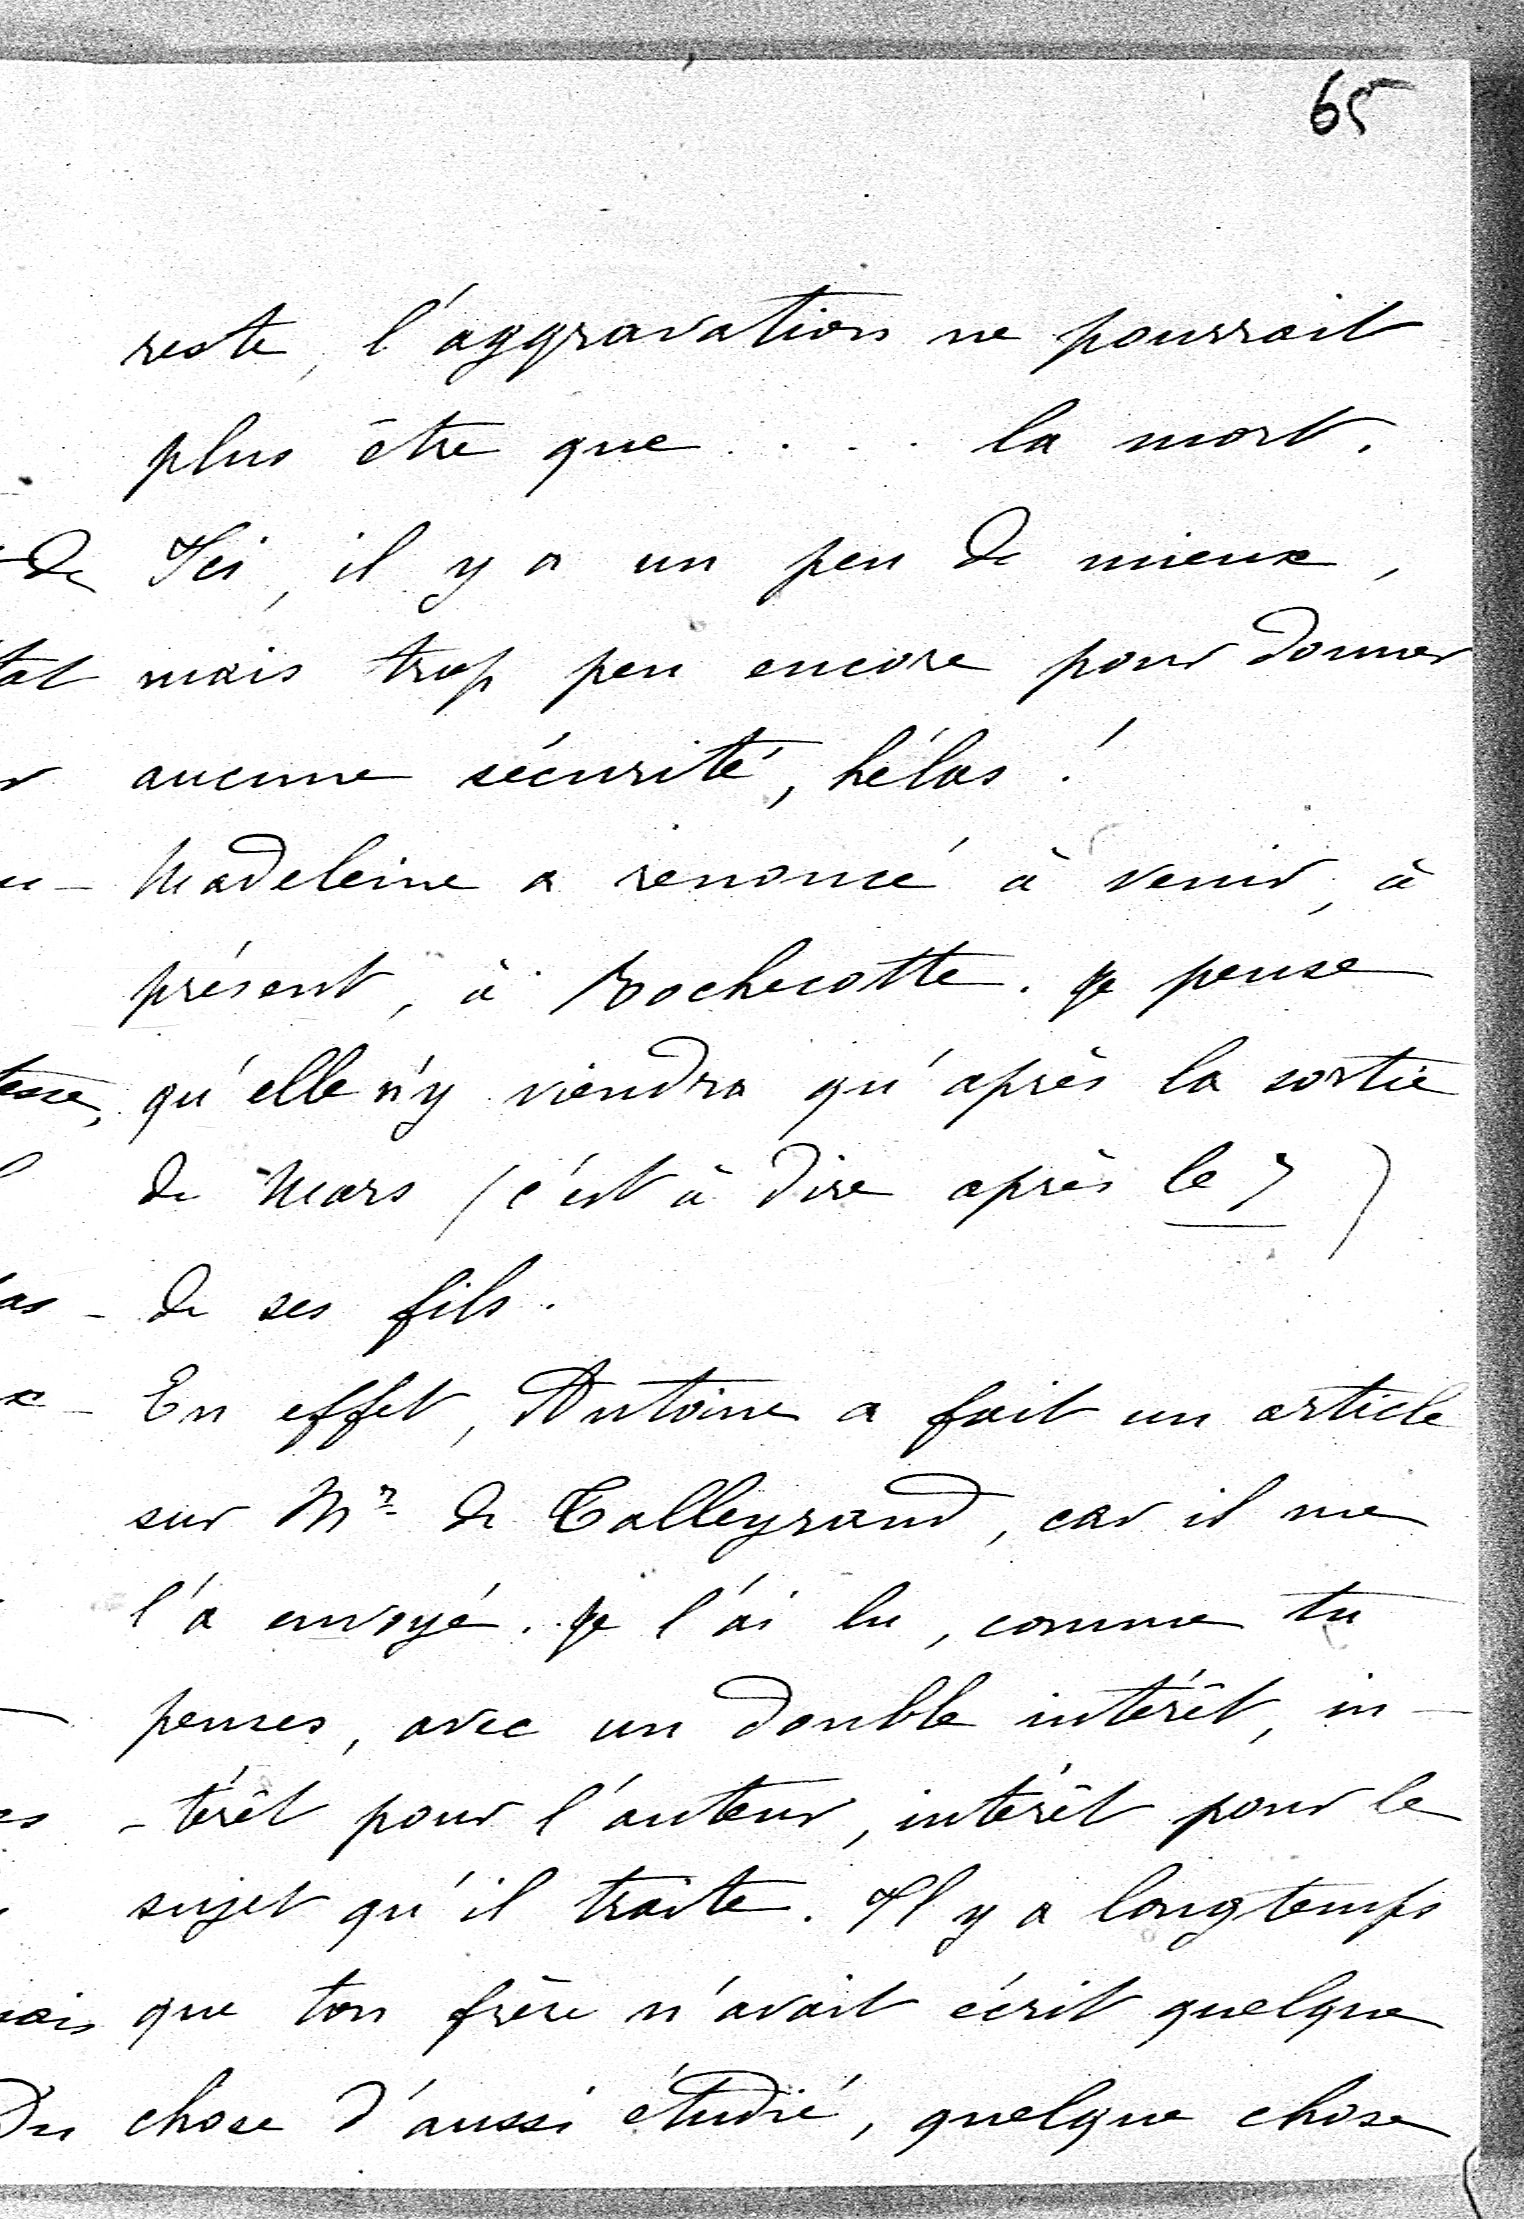 65
reste, l'aggravation ne pourrait
plus être que . . . la mort.
Ici, il y a un peu de mieux,
mais trop peu encore pour donner
aucune sécurité, hélas !
Madeleine a renoncé à venir, à
présent, à Rochecotte. Je pense
qu'elle n'y viendra qu'après la sortie
de Mars (c'est à dire après le 7)
de ses fils.
En effet, Antoine a fait un article
sur Mr de Talleyrand, car il me
l'a envoyé. Je l'ai lu, comme tu
penses, avec un double intérêt, in-
-térêt pour l'auteur, intérêt pour le
sujet qu'il traite. Il y a longtemps
que ton frère n'avait écrit quelque
chose d'aussi étudié, quelque chose